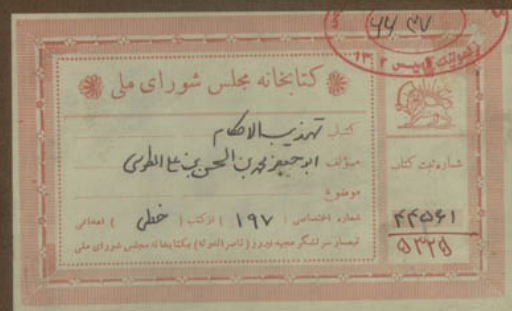 ۶۶ ۳۷
۱۳۰۲
کتابخانه مجلس شورای ملی
کتاب تهذیب الاحکام
مؤلف ابو جعفر محمد بن الحسن بن علی الطوسی
موضوع
شماره اختصاصی ( ۱۹۷ ) از کتب ( خطی ) اهدائی
تیمسار سرلشکر مجید فیروز (ناصرالدوله) بکتابخانه مجلس شورای ملی
شماره ثبت کتاب
۴۴۵۶۱
۵۳۲۵